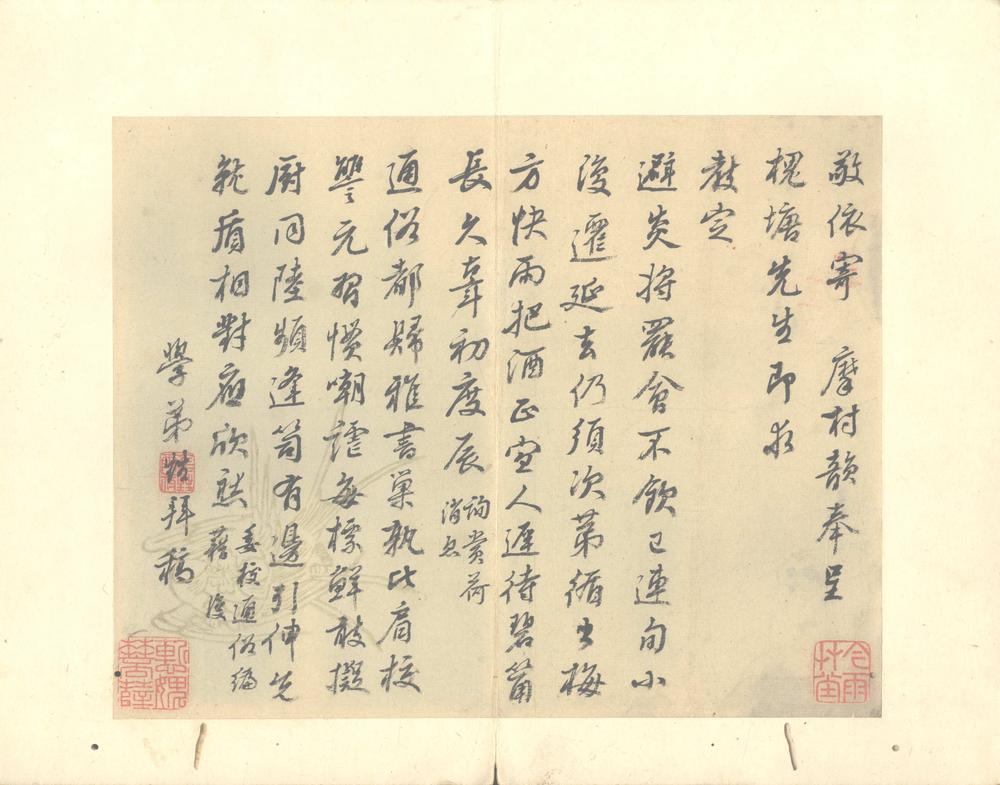 敬依寄 摩村韻奉呈
槐塘先生即求
教定
避炎將罷會不飲已連旬小
復遷延去仍須次第循出梅
方快雨把酒正宜人遲待碧筩
長久辜初度辰
詢賞荷
消息
通俗都歸雅書巢孰比肩校
讐元習慣嘲謔每標鮮敢擬
廚同陸頻逢笥有邊引伸先
就盾相對應欣然
委校通俗編
藉復
學弟 拜稿